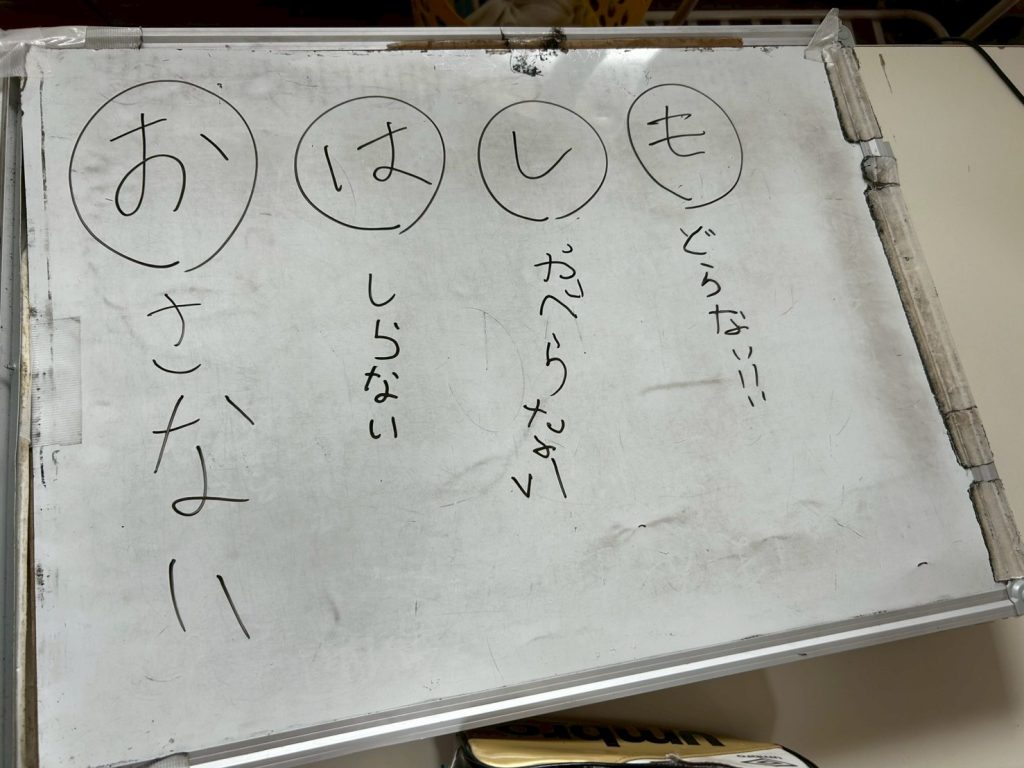 おさない
はしらない
しゃべらなーい
もどらないいい
umbro